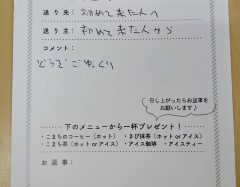 送り先：初めて来た人へ
送り主：初めて来た人から
コメント：
どうぞごゆっくり
召し上がったらお返事を
お願いします♪
下のメニューから一杯プレゼント！
・こまちのコーヒー（ホット）・きび抹茶（ホット or アイス）
・こまち茶（ホット or アイス）・アイス珈琲・アイスティー
お返事：